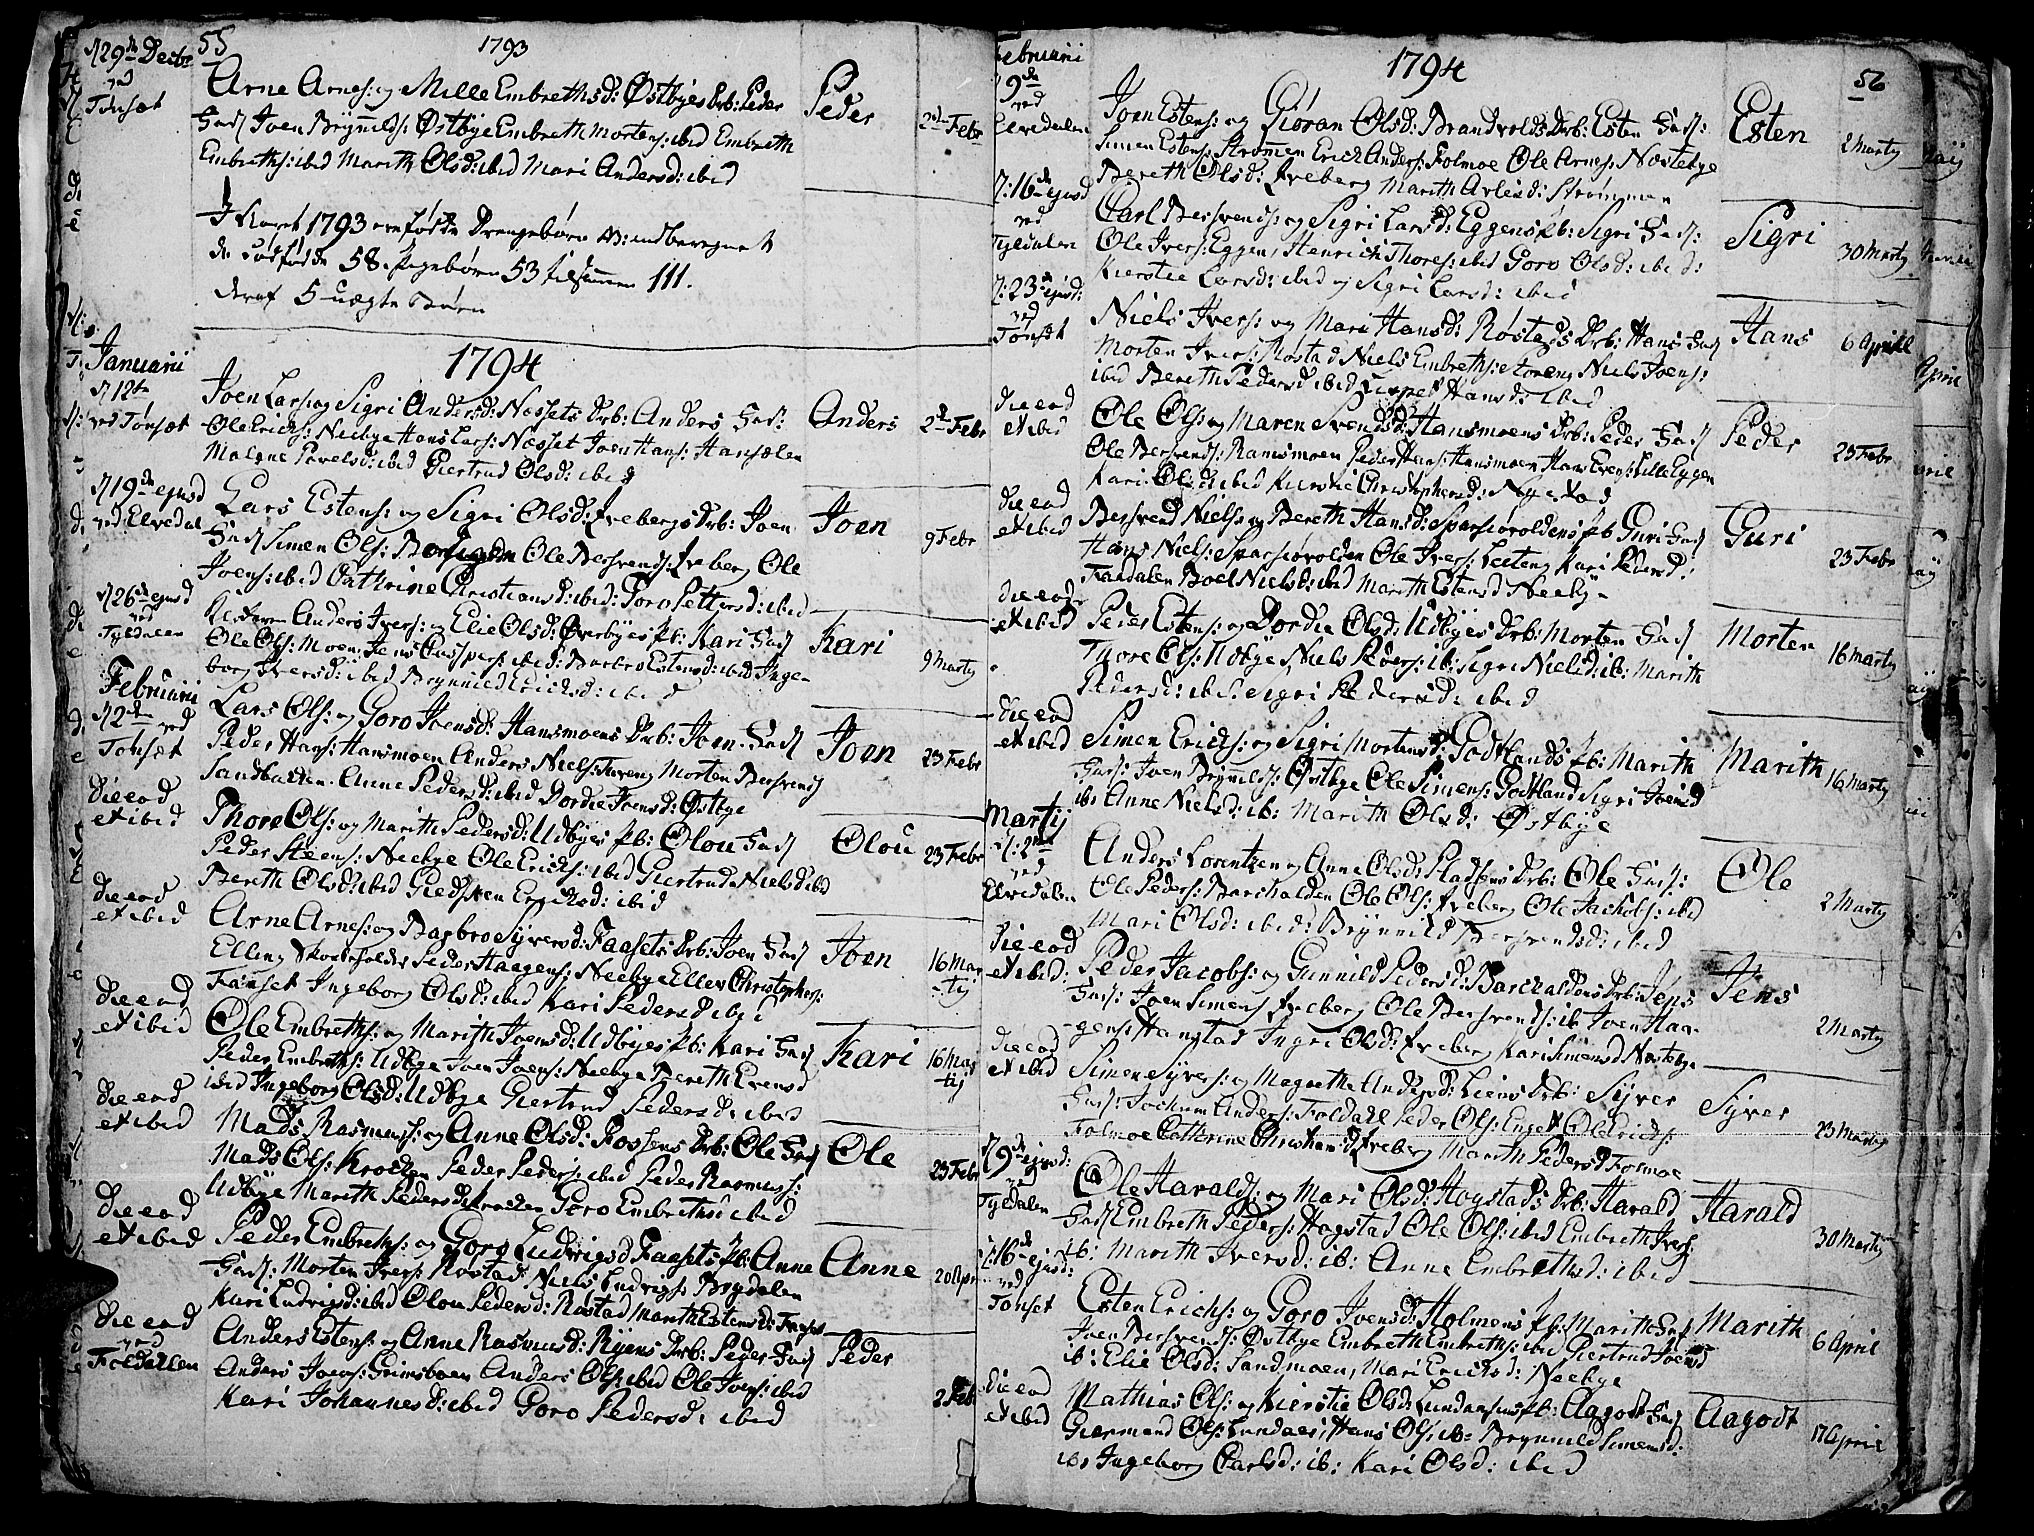 55
1793
d 29de Decbr
ved
Tönset
Arne Arnes: og Mille Embrethsd: Østbyes Drb: Peder
Fad: Joen Brÿnilds: Østbye Embreth Mortens: ibid Embreth
Embreths: ibid Marith Olsd: ibid Mari Andersd: ibid
Peder
2de Febr
I Aaret 1793 ere fødte Drengebørn
de dødfødde 58. Pigebørn 53 tilsammen 111.
deraf 5 uægte Børn
Januarii
1794
d 12te
ved Tønset
Joen Lars: og Sigri Andersd: Næssets Drb: Anders Fad:
Ole Ericks: Neebye Hans Lars: Næsset Joen Hans:
Malene Povelsd: ibid Giertrud Olsd: ibid
Anders
2de Febr
d 19de ejusd
ved Elvedal
Lars Estens: og Sigri Olsd: Drb: Joen
Fad: Simen Ols: Ole Bersvends: Ole
Joens: ibid Cathrine Christiansd: ibid: Goro Pettersd: ibid
Joen
9 Febr
d 26de ejusd
ved
Tyldalen
Anders Ivers: og Elie Olsd: Øverbyes Pb: Kari Fad:
Ole Ols: Moen Jens Caspers: ibid: Barbro Estensd: ibid Inge-
borg Iversd: ibid Brynnild Ericksd: ibid
Kari
9 Marty
Februarii
d 2den ved
Tönset
Lars Ols: og Goro Joensd: Hansmoens Drb: Joen Fad:
Peder Hans: Hansmoen Anders Niels: Morten Bersvend:
Sandbakken Anne Pedersd: ibid Dordie Joensd: Østbye
Joen
23 Febr
die eod
et ibid
Thore Ols: og Marith Pedersd: Udbyes Pb: Olou Fad:
Peder Steens: Neebye Ole Ericks: ibid Giertrud Nielsd ibid
Bereth Olsd: ibid Ericksd: ibid
Olou
23 Febr
die eod
et ibid
Arne Arnes: og Barbro Syversd: Faasets Drb: Joen Fad:
Elling Peder Haagens: Neebye Ellev Christophers:
Faaset Ingeborg Olsd: ibid Kari Pedersd ibid
Joen
16 Mar
tij
die eod
et ibid
Ole Embreths: og Marith Joensd: Udbyes Pb: Kari Fad:
Peder Embreths: Udbye Joen Joens: Neebye Bereth Evensd
ibid Ingeborg Olsd: Udbye Giertrud Pedersd: ibid
Kari
16 Mar
tij
die eod
et ibid
Mads Rasmuss: og Anne Olsd: Fossens Drb: Ole Fad:
Mads Ols: Kroeken Peder Peders: ibid Peder Rasmuss:
Udbye Marith Pedersd: Kroeken Goro Embrethsd: ibid
Ole
23 Febr
die eod
et ibid
Peder Embreths: og Goro Ludvigsd Faasets Pb: Anne
Fad: Morten Ivers: Røstad Niels Ludvigs: Brydalen
Kari Ludvigsd: ibid Olou Pedersd: Røstad Marith Estensd: Faaset
Anne
20 Apr
die eod
ved
Foldallen
Anders Estens: og Anne Rasmusd: Ryens Drb: Peder Fad:
Anders Joens: Grimsboen Anders Ols: ibid Ole Joens: ibid
Kari Johannesd: ibid Goro Pedersd: ibid
Peder
2 Feb
56
Februarii
1794
9de
ved
Elvedalen
Joen Estens: og Giöran Olsd: Brandvolds Drb: Esten Fad:
Simen Estens: Strømmen Erick Anders: Folmoe Ole Arnes: Nøstebye
Bereth Olsd: Marith Arnesd: Strømmen
Esten
2 Marty
d: 16de ejusd
ved
Tyldalen
Carl Bersvends: og Sigri Larsd: Eggens Pb: Sigri Fad:
Ole Ivers: Eggen Henrich Thores: ibid Goro Olsd: ibid:
Kierstie Larsd: ibid og Sigri Larsd: ibid
Sigri
30 Marty
d: 23de ejusd:
ved
Tønset
Niels Ivers: og Mari Hansd: Røstads Drb: Hans Fad:
Morten Ivers: Røstad Niels Embreths: Niels Joens:
ibid Bereth Pedersd ibid Lispet Hansd: ibid
Hans
6 Aprill
die eod
et ibid
Ole Ols: og Maren Svendsd: Hansmoens Drb: Peder Fad:
Ole Bersvends: Ramsmoen Peder Hans: Hansmoen Hans Evens: Lille Eggen
Kari Olsd: ibid Kierstie Christophersd: Nyestad
Peder
23 Febr
die eod
et ibid
Bersvend Niels: og Bereth Hansd: Sparsiøvoldens Pb Guri Fad:
Hans Niels: Sparsiøvolden Ole Ivers: Leeteng Kari Pedersd:
Faadalen Boel Nielsd: ibid Marith Estensd Neeby
Guri
23 Febr
die eod
et ibid
Peder Estens: og Dordie Olsd: Udbyes Drb: Morten Fad:
Thore Ols: Udbye Niels Peders: ib: Sigri Nielsd: ib: Marith
Pedersd: ibid: Sigri Pedersd: ibid
Morten
16 Marty
die eod
et ibid
Simen Ericks: og Sigri Mortensd: Godtlands Pb: Marith
Fad: Joen Brynnilds: Østbye Ole Simens: Godtland Sigri Joensd
ib: Anne Nielsd: ib: Marith Olsd: Østbye
Marith
16 Marty
Martij
d: 2den
ved
Elvedalen
Anders Lorentzen og Anne Olsd: Pladsens Drb: Ole Fad:
Ole Peders: Barchalden Ole Ols: Ole Jachobs: ibid
Mari Olsd: ibid: Brynnild Bersvendsd: ibid
Ole
2 Marty
die eod
et ibid:
Peder Jacobs: og Gunnild Pedersd: Barchaldens Drb: Jens
Fad: Joen Simens: Ole Bersvends: ib Joen Haa-
gens: Hanstad Ingri Olsd: Kari Simensd Nøstebye
Jens
2 Marty
die eod
et ibid
Simen Syvers: og Magrethe Andersd: Liens Drb: Syver
Fad: Jochum Anders: Foldall Peder Ols: Enget Ole Ericks:
Folmoe Cathrine Christiansd: Marith Pedersd Folmoe
Syver
23 Marty
d 9de ejusd:
ved
Tyldalen
Ole Haralds: og Mari Olsd: Hogstads Drb: Harald
Fad: Embreth Peders: Hogstad Ole Ols: ibid Embreth Ivers:
ib: Marith Iversd: ib: Anne Embrethsd: ibid
Harald
30 Marty
d: 16de ejusd:
ved
Tønset
Esten Ericks: og Goro Joensd: Holmens Pb: Marith Fad:
Joen Bersvends: Østbye Embreth Embreths: ibid Giertrud Joensd
ib: Elie Olsd: Sandmoen, Mari Ericksd: Neebye
Marith
6 April
die eod
et ibid
Mathias Ols: og Kierstie Olsd: Lundaasens Pb: Aagodt Fad:
Giermand Ols: Lundaas, Hans Ols: ib: Brynnild Simensd:
ib: Ingeborg Carlsd: ib: Kari Olsd: ibid
Aagodt
17 April